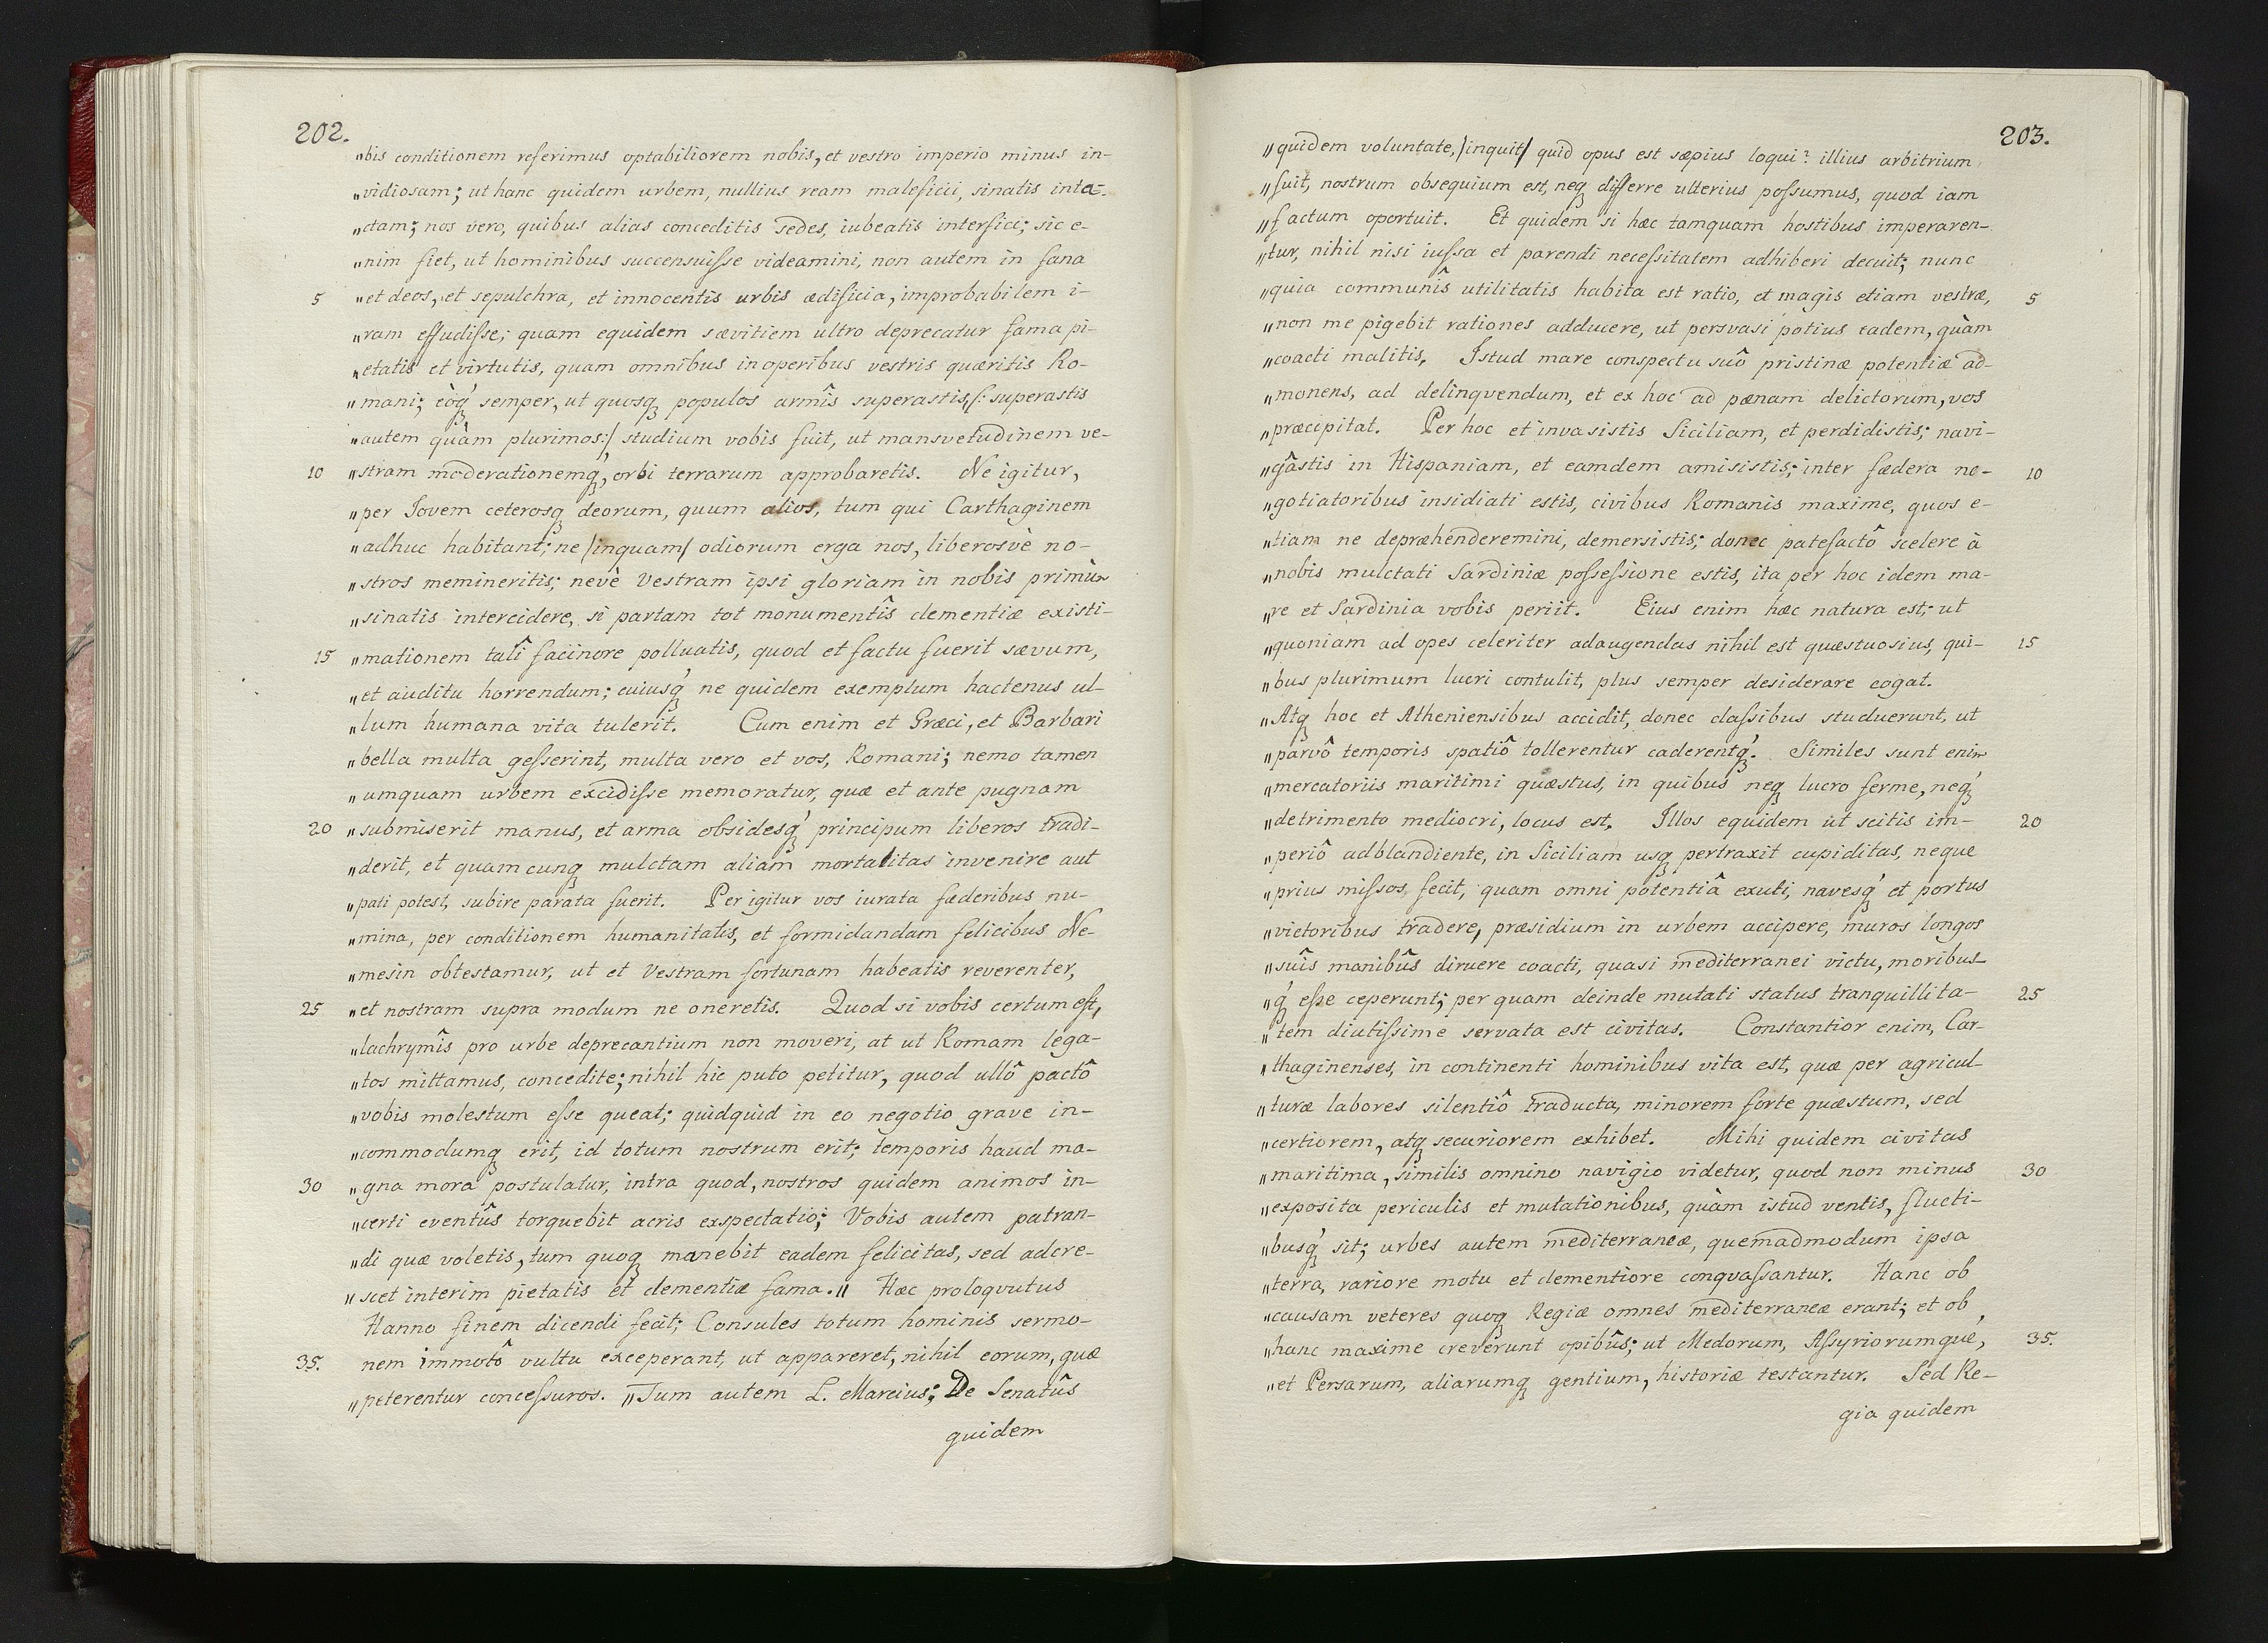 202.
„bis conditionem referimus optabiliorem nobis, et vestro imperio minus in-
„vidiosam; ut hanc quidem urbem, nullius ream maleficii, sinatis inta-
„ctam; nos vero, quibus alias conceditis sedes, iubeatis interfici; sic e-
„nim fiet, ut hominibus succensuisse videamini, non autem in fana
5 „et deos, et sepulchra, et innocentis urbis ædificia, improbabilem i-
„ram effudisse; quam equidem sævitiem ultro deprecatur fama pi-
„etatis et virtutis, quam omnibus in operibus vestris quæritis Ro-
„mani; eòq́ semper, ut quosq populos armîs superastis, /: superastis
„autem quàm plurimos:/ studium vobis fuit, ut mansvetudinem ve-
10 „stram moderationemq́, orbi terrarum approbaretis. Ne igitur,
„per Iovem ceterosq deorum, quum alios, tum qui Carthaginem
„adhuc habitant; ne /inquam/ odiorum erga nos, liberosvè no-
„stros memineritis; nevè Vestram ipsi gloriam in nobis primùm
„sinatis intercidere, si partam tot monumentîs clementiæ existi-
15 „mationem talî facinore polluatis, quod et factu fuerit sævum,
„et auditu horrendum; cuiusq́ ne quidem exemplum hactenus ul-
„lum humana vita tulerit. Cum enim et Græci, et Barbari
„bella multa gesserint, multa vero et vos, Romani; nemo tamen
„umquam urbem excidisse memoratur, quæ et ante pugnam
20 „submiserit manus, et arma obsidesq́ principum liberos tradi-
„derit, et quamcunq mulctam aliam mortalitas invenire aut
„pati potest, subire parata fuerit. Per igitur vos iurata fæderibus nu-
„mina, per conditionem humanitatis, et formidandam felicibus Ne-
„mesin obtestamur, ut et Vestram fortunam habeatis reverenter,
25 „et nostram supra modum ne oneretis. Quod si vobis certum est,
„lachrymîs pro urbe deprecantium non moveri, at ut Romam lega-
„tos mittamus, concedite; nihil hic puto petitur, quod ullô pactô
„vobis molestum esse queat; quidquid in eo negotio grave in-
„commodumq erit, id totum nostrum erit; temporis haud ma-
30 „gna mora postulatur, intra quod, nostros quidem animos in-
„certi eventûs torquebit acris exspectatio; Vobis autem patran-
„di quæ voletis, tum quoq manebit eadem felicitas, sed adcre-
„scet interim pietatis et clementiæ fama.„ Hæc proloqvutus
Hanno finem dicendi fecit; Consules totum hominis sermo-
35. nem immotô vultu exceperant, ut appareret, nihil eorum, quæ
„peterentur concessuros. „Tum autem L. Marcius; De Senatûs
quidem
203.
„quidem voluntate, /inquit/ quid opus est sæpius loqui? illius arbitrium
„fuit, nostrum obsequium est, neq differre ulterius possumus, quod iam
„factum oportuit. Et quidem si hæc tamquam hostibus imperaren-
„tur, nihil nisi iussa et parendi necessitatem adhiberi decuit; nunc
„quia communîs utilitatis habita est ratio, et magis etiam vestræ, 5
„non me pigebit rationes adducere, ut persvasi potius eadem, quàm
„coacti malitis. Istud mare conspectu suô pristinæ potentiæ ad-
„monens, ad delinqvendum, et ex hoc ad pænam delictorum, vos
„præcipitat. Per hoc et invasistis Siciliam, et perdidistis; navi-
„gâstis in Hispaniam, et eamdem amisistis; inter fædera ne- 10
„gotiatoribus insidiati estis, civibus Romanis maxime, quos e-
„tiam ne depræhenderemini, demersistis; donec patefactô scelere à
„nobis mulctati Sardiniæ possessione estis, ita per hoc idem ma-
„re et Sardinia vobis periit. Eius enim hæc natura est; ut
„quoniam ad opes celeriter adaugendas nihil est quæstuosius, qui- 15
„bus plurimum lucri contulit, plus semper desiderare cogat.
„Atq hoc et Atheniensibus accidit, donec classibus studuerunt, ut
„parvô temporis spatiô tollerentur caderentq́. Similes sunt enim
„mercatoriis maritimi quæstus, in quibus neq lucro ferme, neq́
„detrimento mediocri, locus est. Illos equidem ut scitis im- 20
„periô adblandiente, in Siciliam usq pertraxit cupiditas, neque
„prius missos, fecit, quam omni potentiâ exuti, navesq́ et portus
„victoribus tradere, præsidium in urbem accipere, muros longos
„suîs manibûs diruere coacti, quasi mediterranei victu, moribus-
„q́ esse ceperunt; per quam deinde mutati status tranquillita- 25
„tem diutissime servata est civitas. Constantior enim, Car-
„thaginenses, in continenti hominibus vita est, quæ per agricul-
„turæ labores silentiô traducta, minorem forte quæstum, sed
„certiorem, atq securiorem exhibet. Mihi quidem civitas
„maritima, similis omnino navigio videtur, quod non minus 30
„exposita periculis et mutationibus, quàm istud ventis, flucti-
„busq́ sit; urbes autem mediterraneæ, quemadmodum ipsa
„terra, rariore motu et clementiore conqvassantur. Hanc ob
„causam veteres quoq Regiæ omnes mediterraneæ erant; et ob
„hanc maxime creverunt opibûs; ut Medorum, Assyriorumque, 35.
„et Persarum, aliarumq gentium, historiæ testantur. Sed Re-
gia quidem